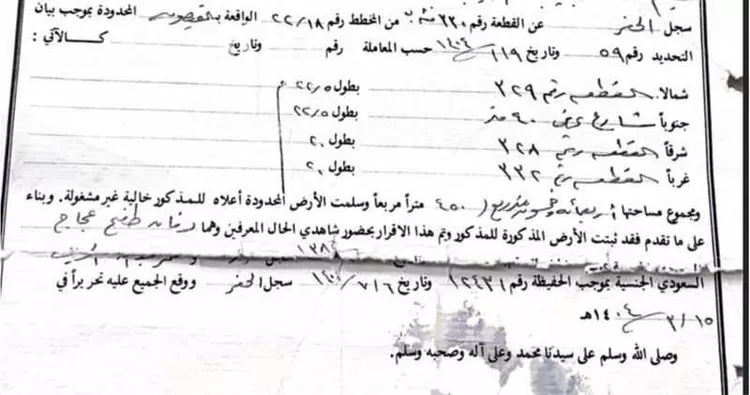 سجل الحفر عن القطعة رقم ٣٣٠ من المخطط رقم ٢٢/١٨ الواقعة المحدودة بموجب بيان
التحديد رقم ٥٩ وتاريخ ١/١٩/١٤٠٤ حسب المعاملة رقم وتاريخ كالآتي :
شمالا. القطعه رقم ٣٢٩ بطول ٢٢/٥ م
جنوباً شارع عرض ٤٠ متر بطول ٢٢/٥
شرقاً القطعه رقم ٣٢٨ بطول ٢٠
غرباً القطعه رقم ٣٣٢ بطول ٢٠
ومجموع مساحتها أربعمائه وخمسون متر مربع (٤٥٠) متراً مربعاً وسلمت الأرض المحدودة أعلاه للمذكور خالية غير مشغولة. وبناء
على ما تقدم فقد ثبتت الأرض المذكورة للمذكور وتم هذا الاقرار بحضور شاهدي الحال المعرفين وهما
السعودي الجنسية بموجب الحفيظة رقم ١٢٤٣١ وتاريخ ٧/٦/ سجل الحفر ووقع الجميع عليه تحريراً في
٣/١٥/ ١٤٠٤هـ
وصلى الله وسلم على سيدنا محمد وعلى آله وصحبه وسلم.